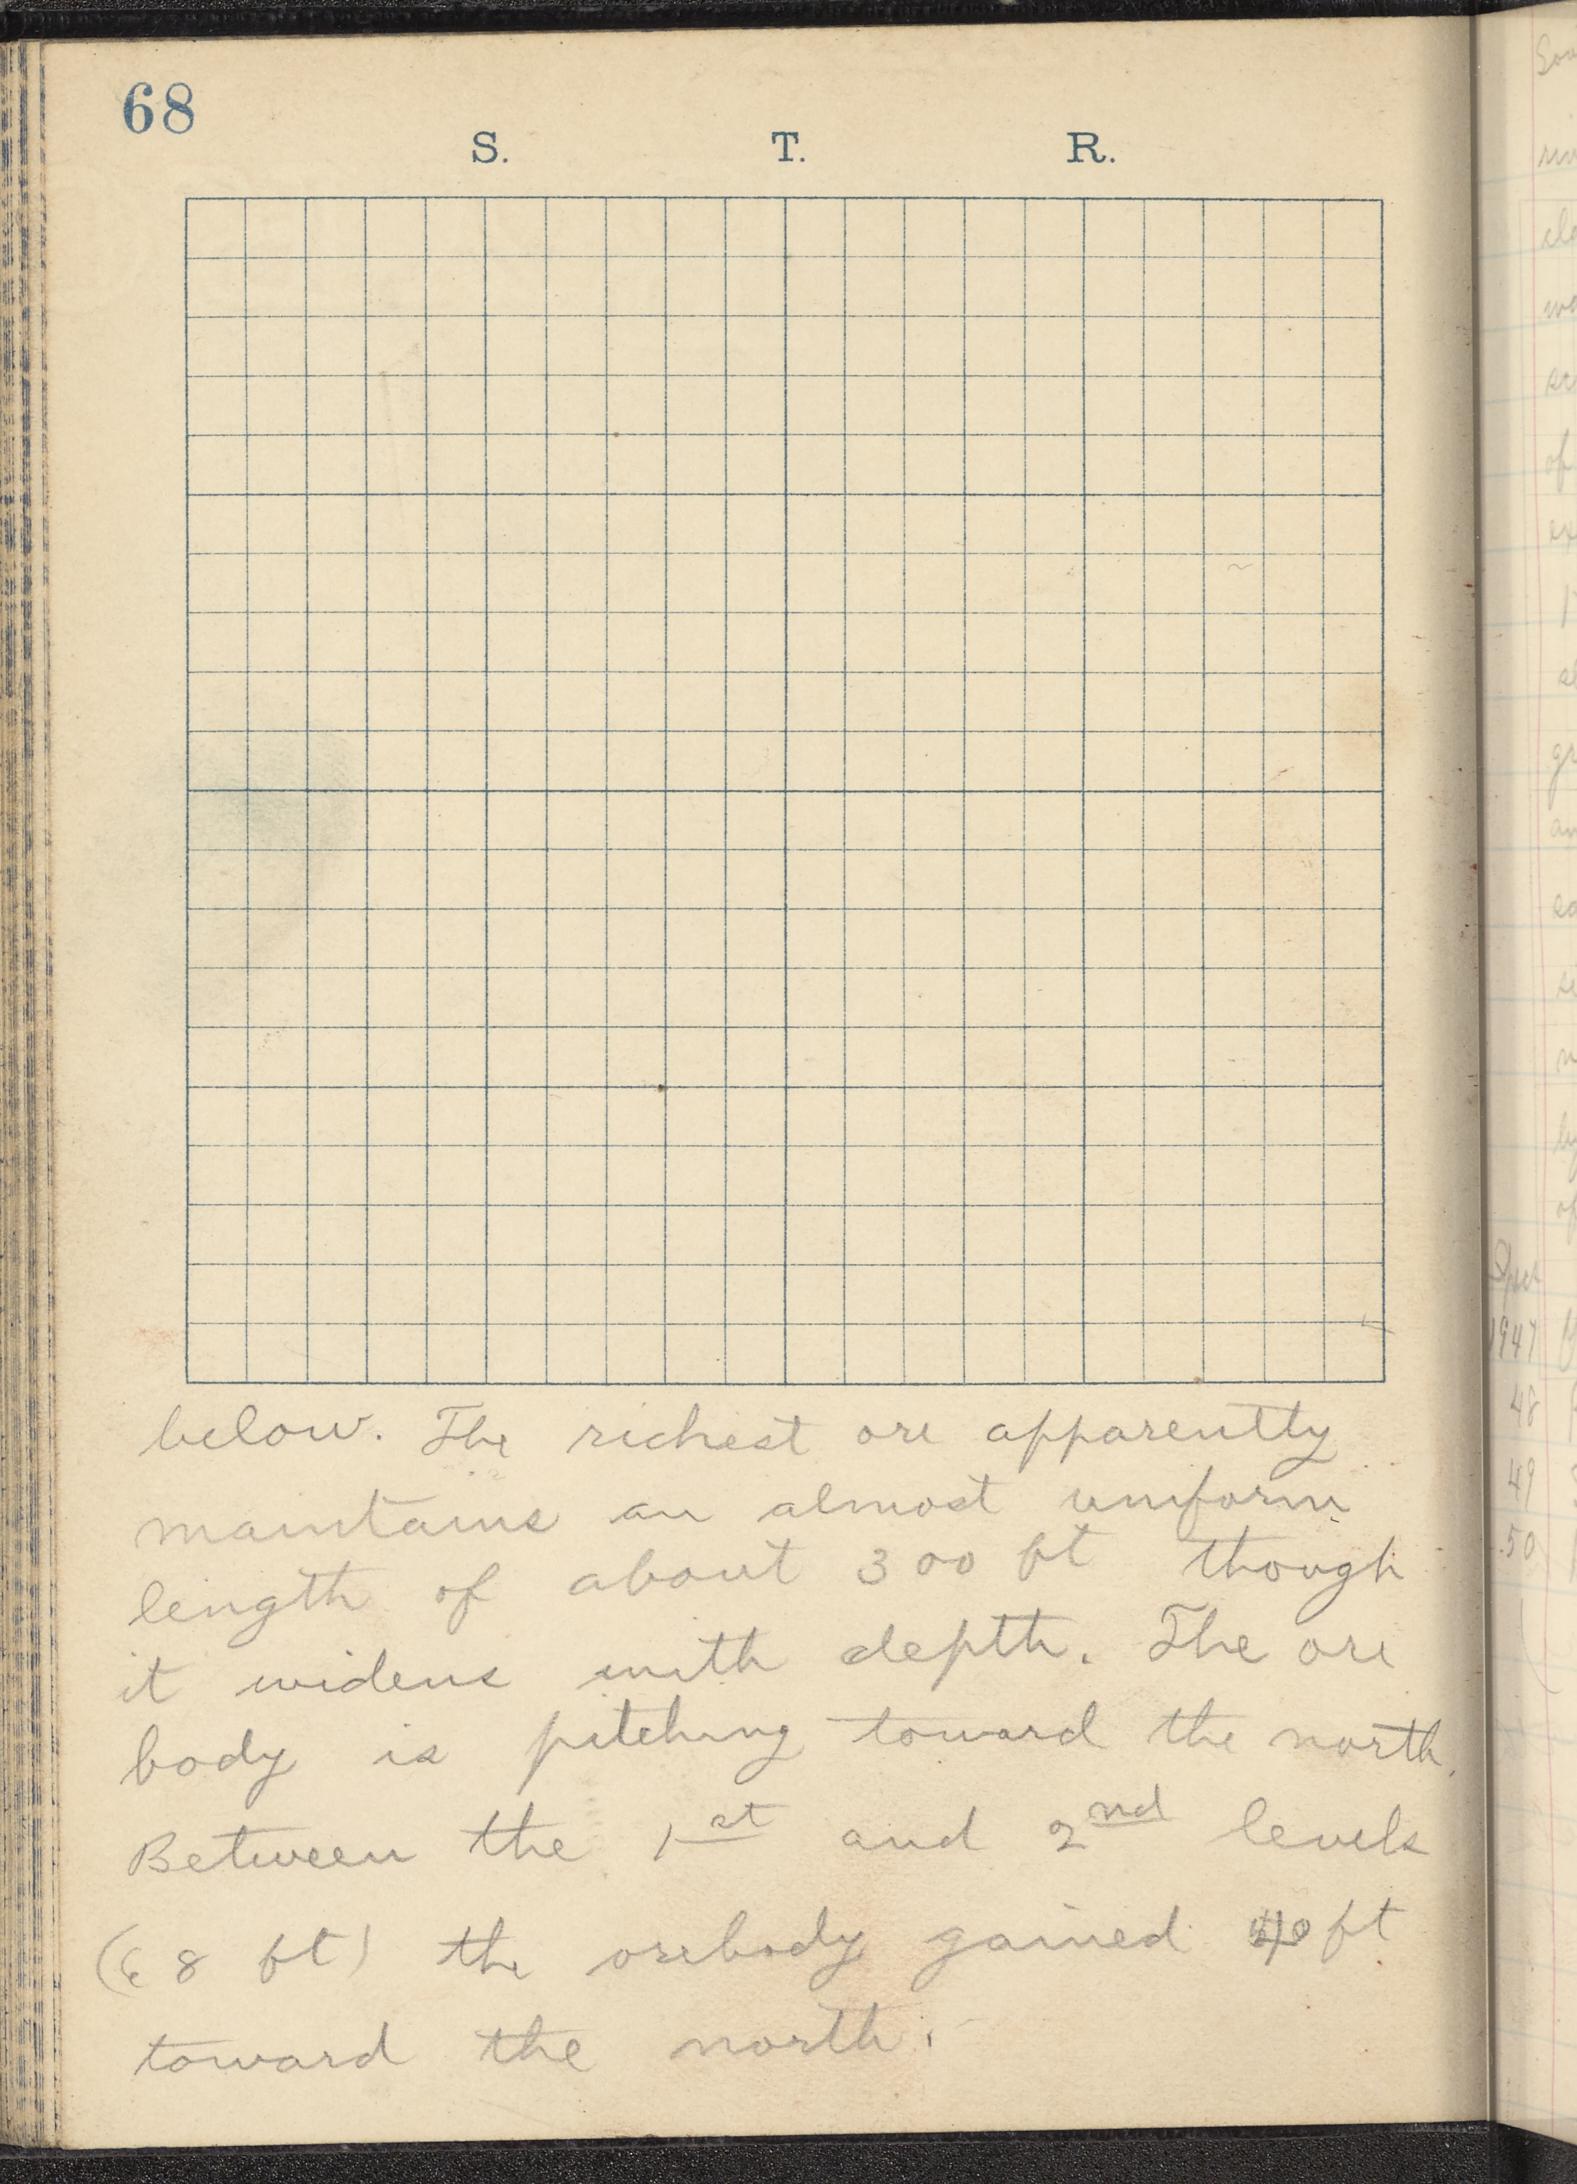 68
S. T. R.
below. The richest ore apparently
maintains an almost uniform
length of about 300 ft though
it widens with depth. The ore
body is pitching toward the north.
Between the 1st and 2nd levels
(68 ft) the orebody gained 40 ft
toward the north.
1947
48
49
50